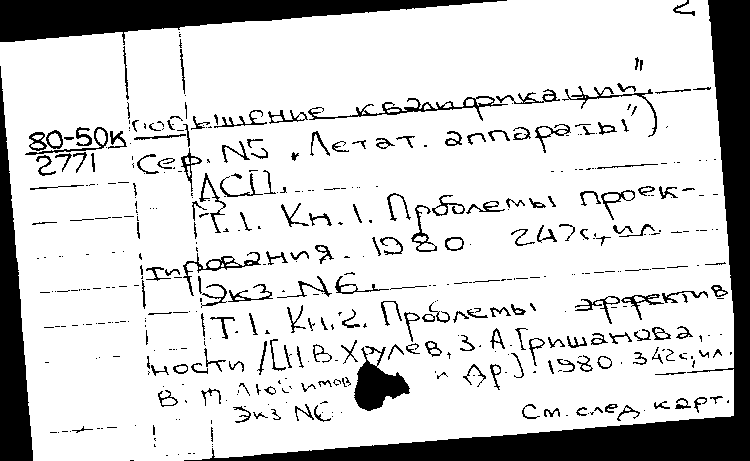 2
повышение квалификации".
80-50к
2771
Сер. N5 „Летат. аппараты")
ДСП.
Т.1. Кн.1. Проблемы проек-
тирования. 1980. 247с., ил.
Экз. N6.
Т.1. Кн.2. Проблемы эффектив
ности /[Н.В. Хрулев, З.А. Гришанова,
В. и др.]. 1980. 342с., ил.
Экз N6.
См. след. карт.